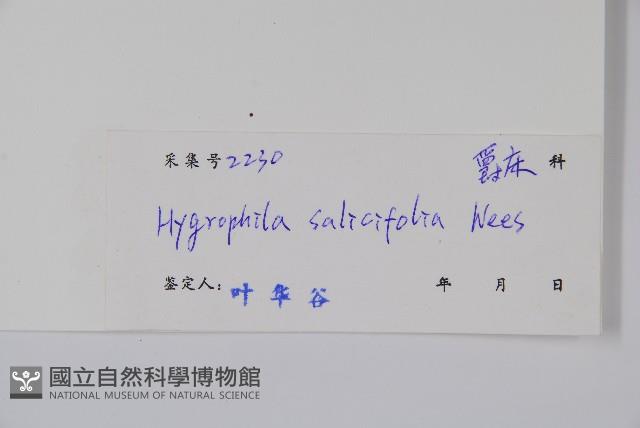 采集号 2230 爵床 科
Hygrophila salicifolia Nees
鉴定人: 叶华谷 年 月 日
國立自然科學博物館
NATIONAL MUSEUM OF NATURAL SCIENCE